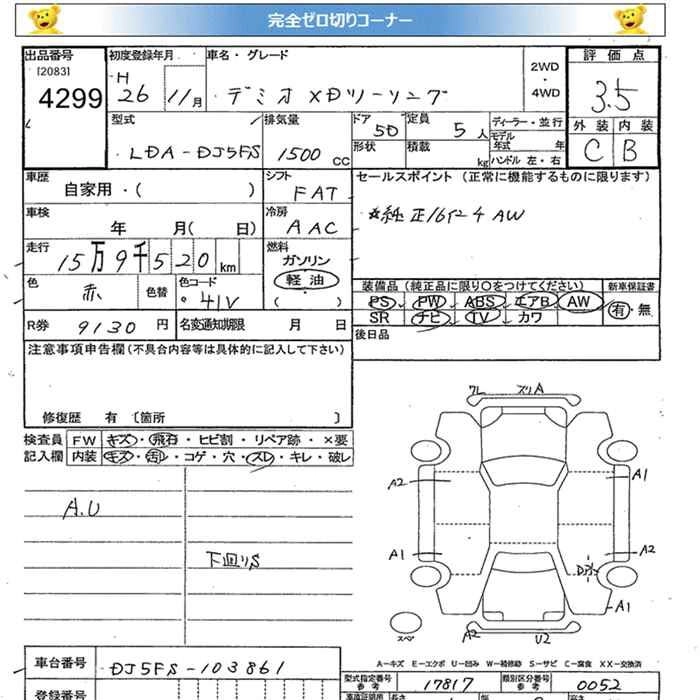 完全ゼロ切りコーナー
出品番号
[2083]
4299
初度登録年月
H
26 11月
車名・グレード
デミオ XDツーリング
2WD
・
4WD
評価点
3.5
外装 内装
C B
型式
LDA-DJ5FS
排気量
1500 cc
ドア
5D
定員
5人
形状
積載
kg
ディーラー・並行
モデル
年式 年
ハンドル 左・右
車歴
自家用・( )
シフト
FAT
セールスポイント (正常に機能するものに限ります)
☆純正16インチAW
車検
年 月( 日)
冷房
AAC
走行
15万9千520km
燃料
ガソリン
軽油
( )
色
赤
色替
色コード
41V
装備品 (純正品に限り○をつけてください)
新車保証書
PS PW ABS エアB AW
有・無
SR ナビ TV カワ
R券
9130円
名変通知期限 月 日
後日品
注意事項申告欄 (不具合内容等は具体的に記入して下さい)
修復歴 有 〔箇所 〕
検査員
記入欄
FW キズ・飛石・ヒビ割・リペア跡・×要
内装 キズ・汚レ・コゲ・穴・スレ・キレ・破レ
A.U
下回りS
ワレ ズリA
A2 A1
A1 A2
A1
スペア
A2 U2
A-キズ E-エクボ U-凹み W-補修跡 S-サビ C-腐食 XX-交換済
車台番号
DJ5FS-103861
型式指定番号
参考
17817
類別区分番号
参考
0052
登録番号